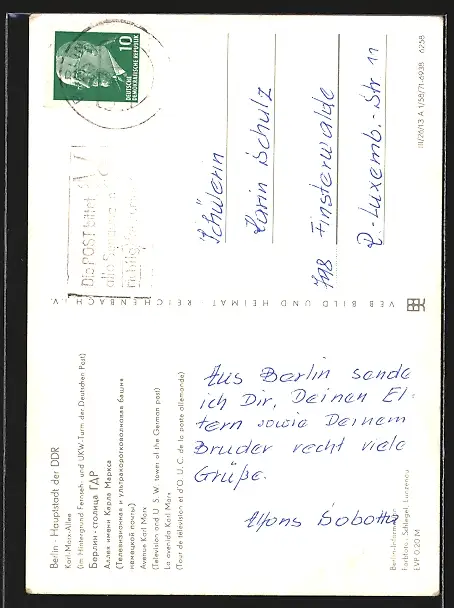 Berlin - Hauptstadt der DDR
Karl-Marx-Allee
(im Hintergrund Fernseh- und UKW-Turm der Deutschen Post)
Берлин - столица ГДР
Аллея имени Карла Маркса
(Телевизионная и ультракоротковолновая башня
немецкой почты)
Avenue Karl Marx
(Television and U. S. W. tower of the German post)
La avenida Karl Marx
(Tour de télévision et d'O. U. C. de la poste allemande)
Aus Berlin sende
ich Dir, Deinen El-
tern sowie Deinem
Bruder recht viele
Grüße.
Alfons Sobotta
Berlin-Information
Farbfoto: Schlegel,
EVP 0,20 M
VEB BILD UND HEIMAT · REICHENBACH i. V.
10
DEUTSCHE
DEMOKRATISCHE REPUBLIK
Die POST bittet
alle
richtig
Schülerin
Karin Schulz
798 Finsterwalde
R.-Luxemb.-Str 11
III/26/13 A 1/58/71-6938 6258